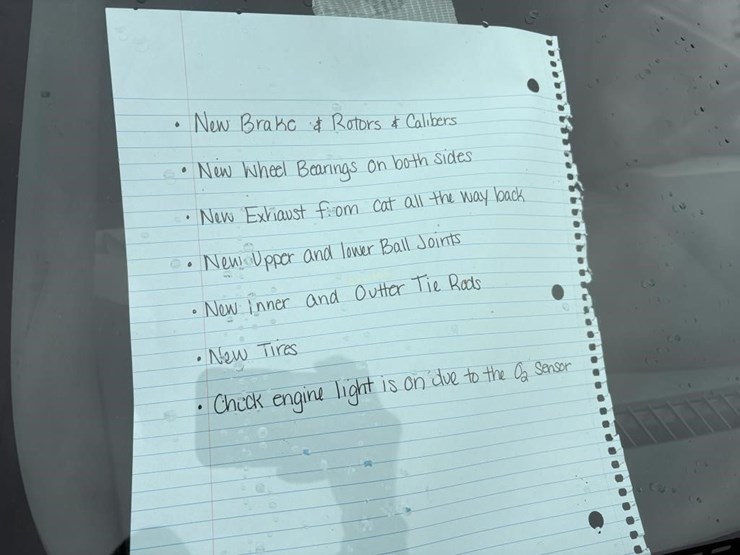 • New Brake & Rotors & Calibers
• New Wheel Bearings on both sides
• New Exhaust from cat all the way back
• New Upper and lower Ball Joints
• New inner and Outter Tie Rods
• New Tires
• Check engine light is on due to the O2 Sensor